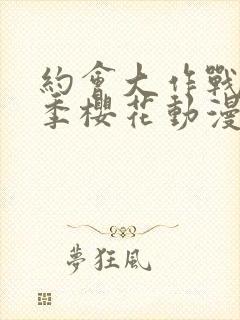 約會大作戰
季櫻花動漫
夢狂風